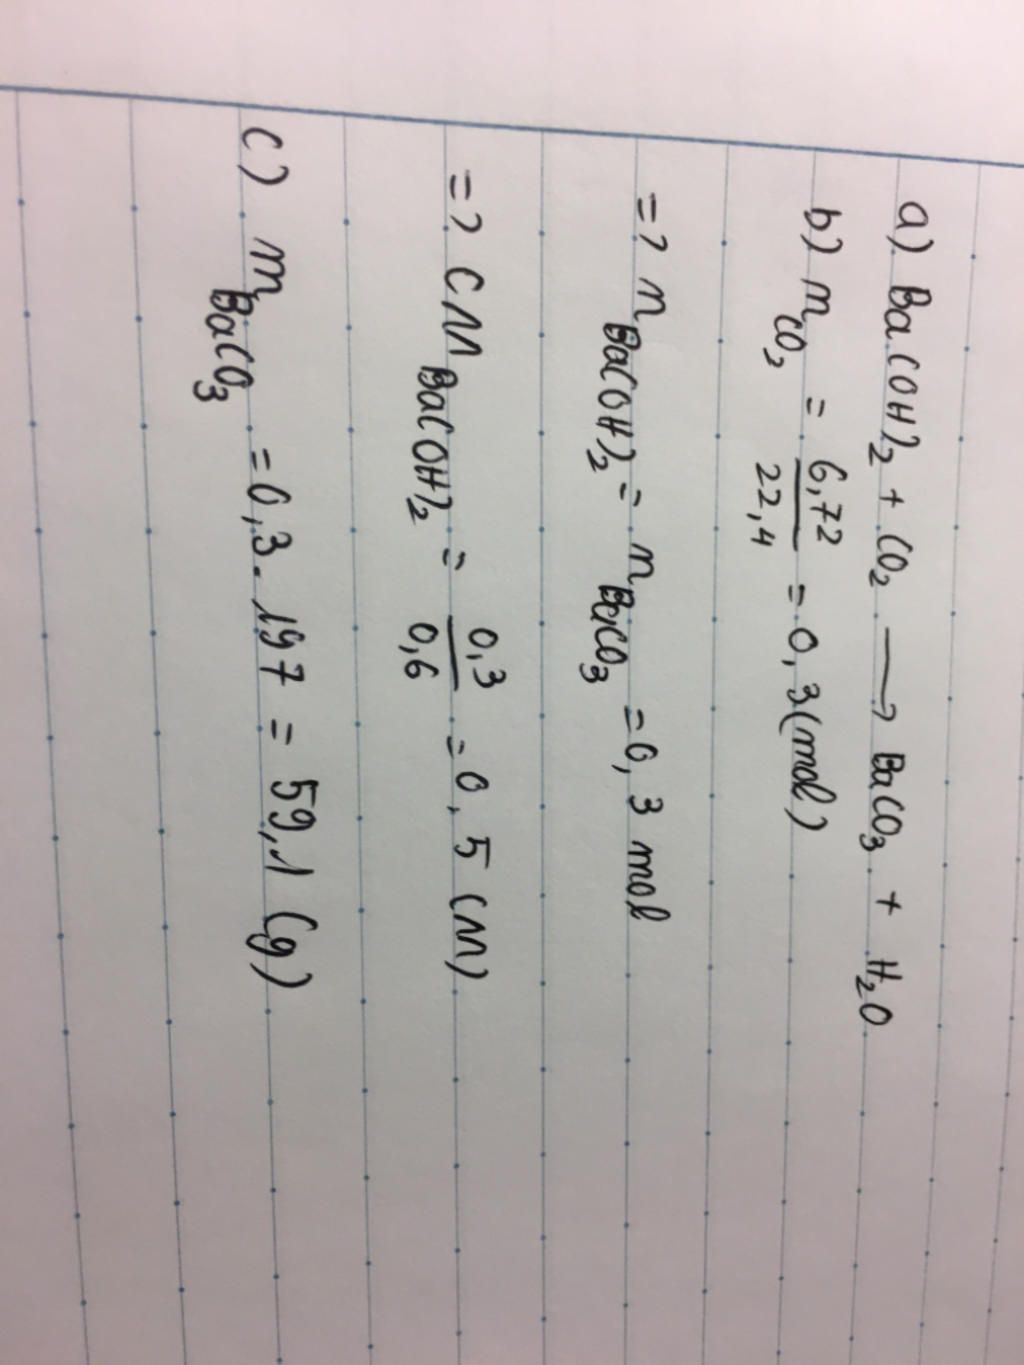 a) Ba(OH)₂ + CO₂ → BaCO₃ + H₂O
b) n CO₂ = 6,72/22,4 = 0,3 (mol)
=> n Ba(OH)₂ = n BaCO₃ = 0,3 mol
=> CM Ba(OH)₂ = 0,3/0,6 = 0,5 (M)
c) m BaCO₃ = 0,3. 197 = 59,1 (g)